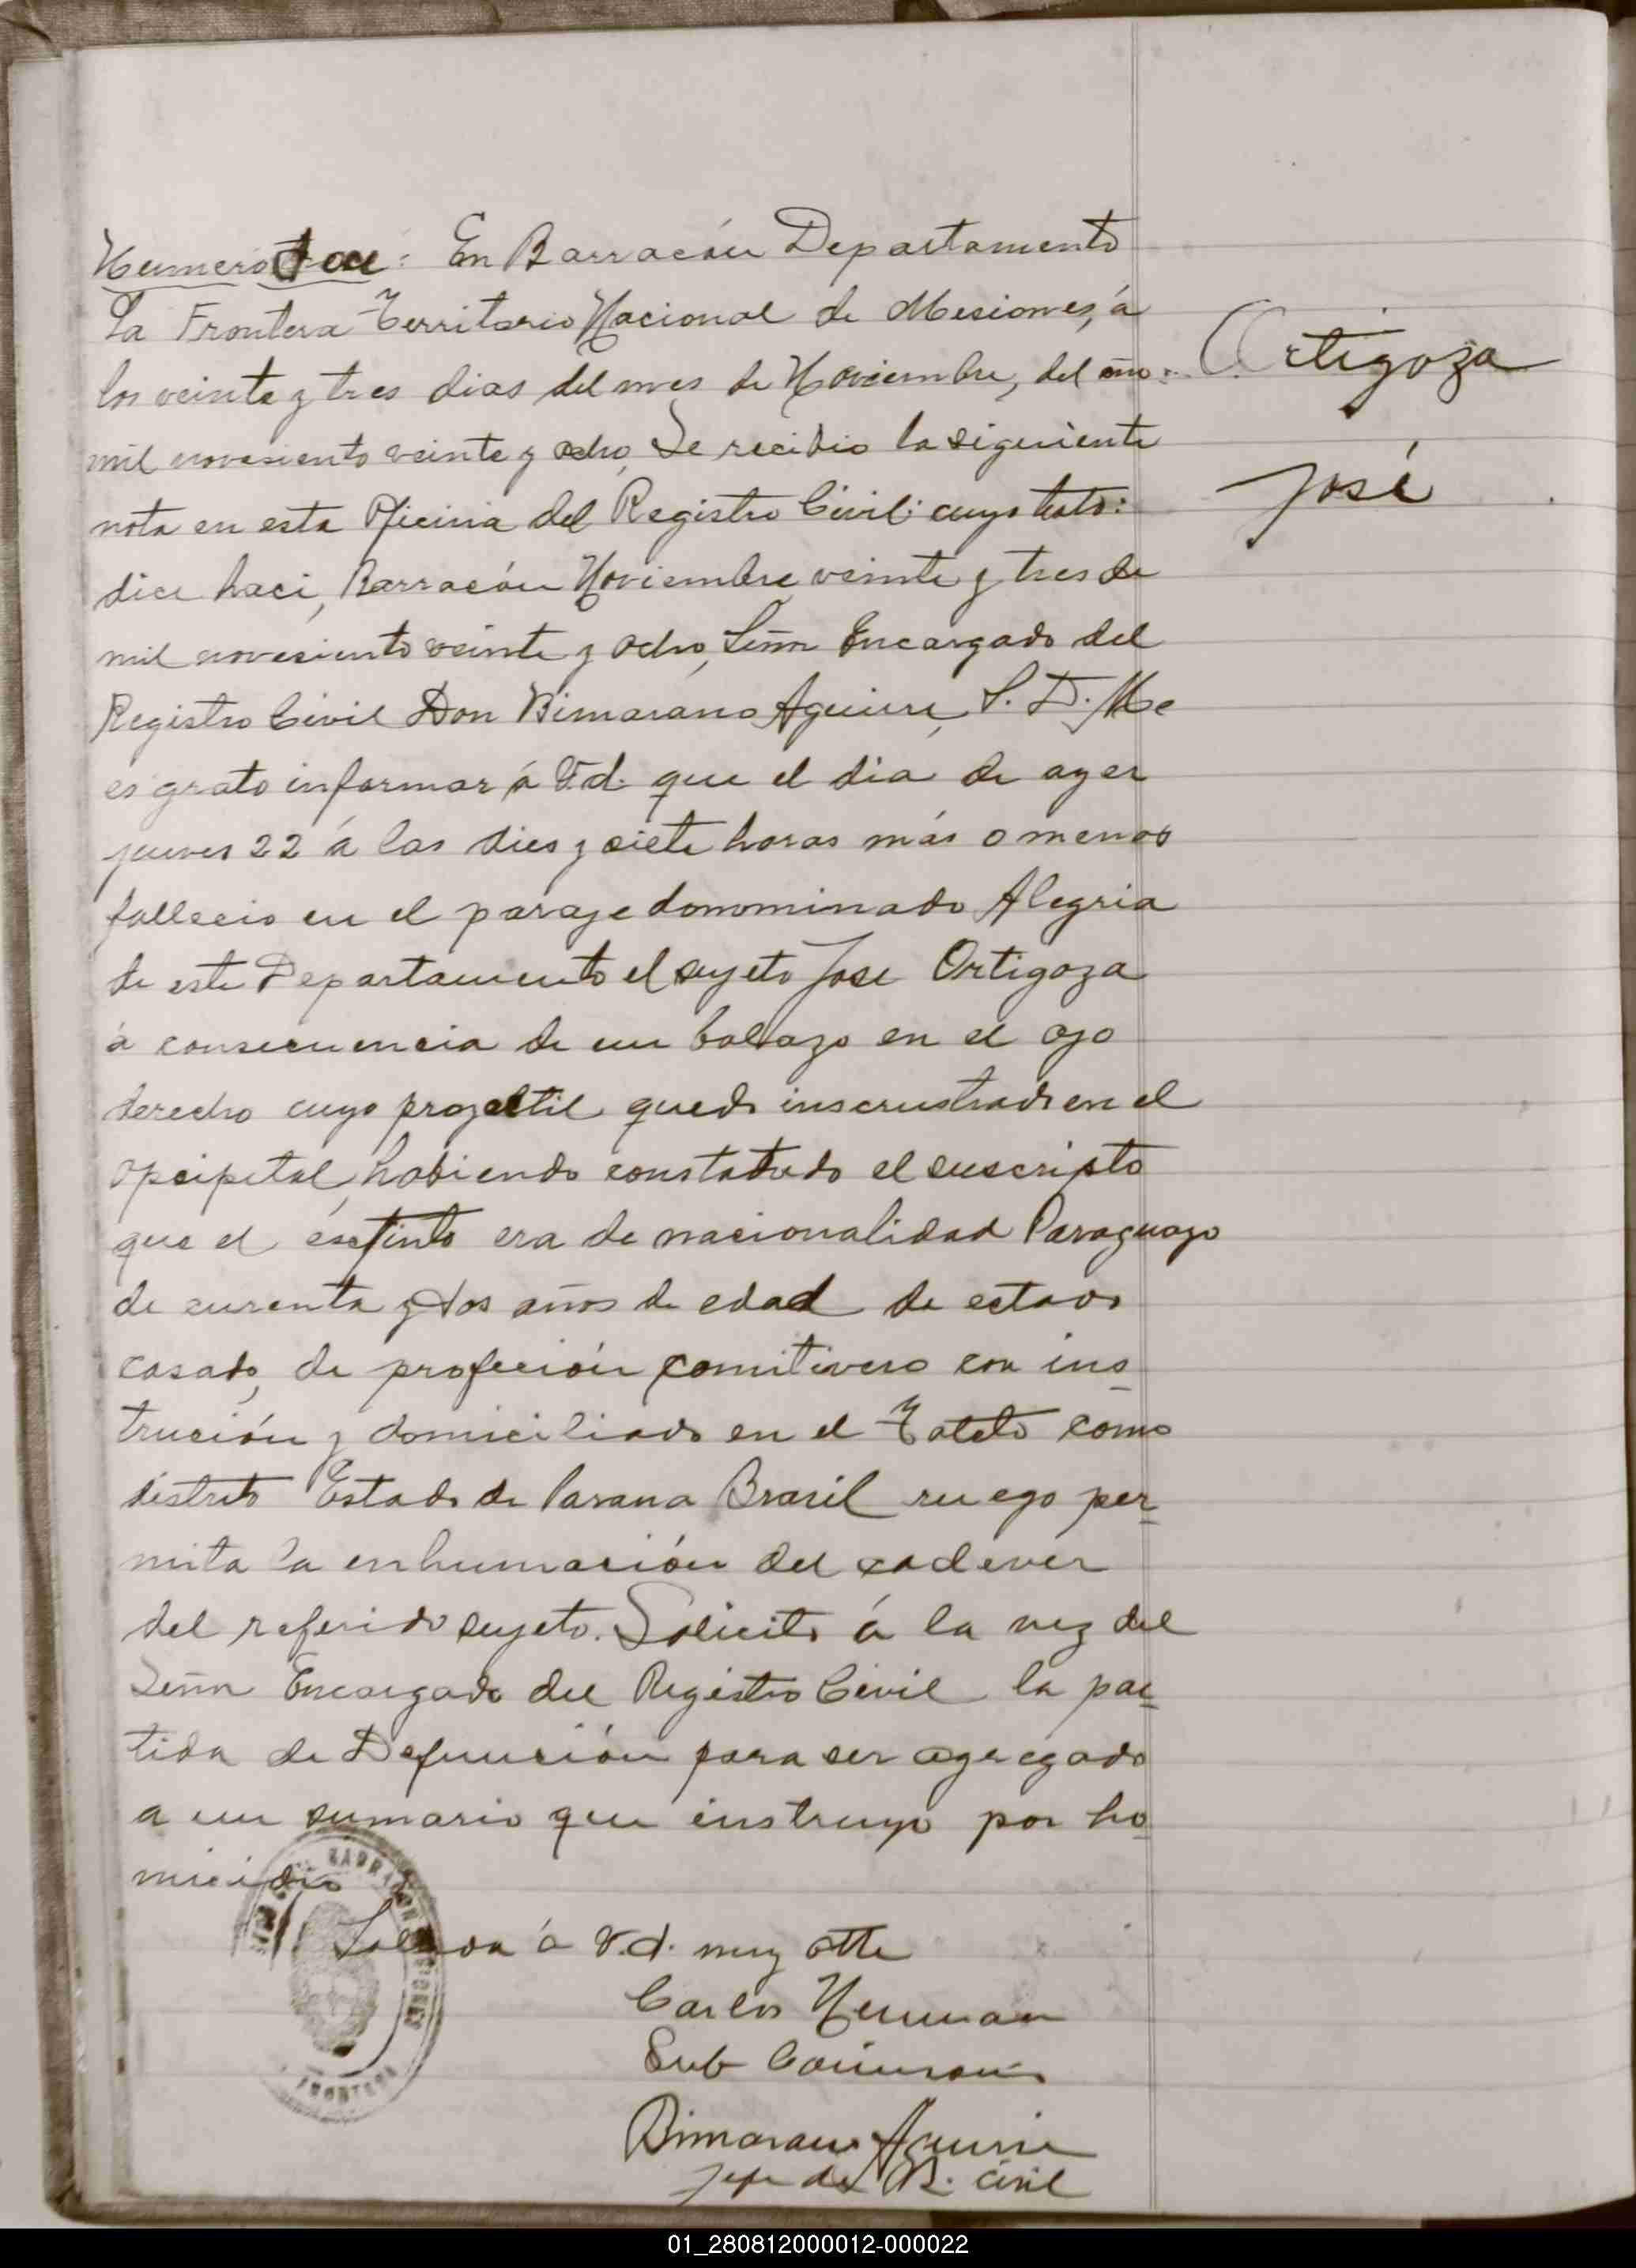 Numero doce: En Barracón Departamento
La Frontera Territorio Nacional de Mesiones, á
los veinte y tres dias del mes de Noviembre, del año
mil novesiento veinte y ocho, Se recibio la siguiente
nota en esta Oficina del Registro Civil: cuyo testo:
dice haci, Barracón Noviembre veinte y tres de
mil novesiento veinte y ocho, Señor Encargado del
Registro Civil Don Bimarano Aguirre, S. D. Me
es grato informar á Vd. que el dia de ayer
jueves 22 á las dies y siete horas más o menos
fallecio en el paraje donominado Alegria
de este Departamento el sujeto Jose Ortigoza
á consecuencia de un balazo en el ojo
derecho cuyo proyectil quedo inscrustrado en el
opcipital, habiendo constatado el suscripto
que el esctinto era de nacionalidad Paraguayo
de curenta y dos años de edad de estado
casado, de profeción comitivero con ins-
trución y domiciliado en el como
distrito Estado de Parana Brasil ruego per-
mita la enhumación del cadever
del referido sujeto. Solicito á la vez del
Señor Encargado del Registro Civil la par-
tida de Defunción para ser agregado
a un sumario que instruyo por ho-
micidio
Saluda á Vd. muy atte
Carlos
Sub Comisario
Bimarano Aguirre
Jefe del R. Civil
Ortigoza
José
FRONTERA
01_280812000012-000022